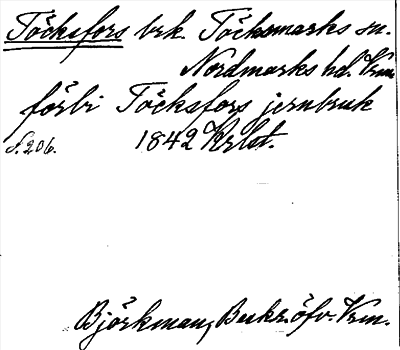 Töcksfors brk. Töcksmarks sn.
Nordmarks hd. Vrm.
förbi Töcksfors jernbruk
s. 206. 1842 Krlst.
Björkman, Beskr. öfv. Vrm.